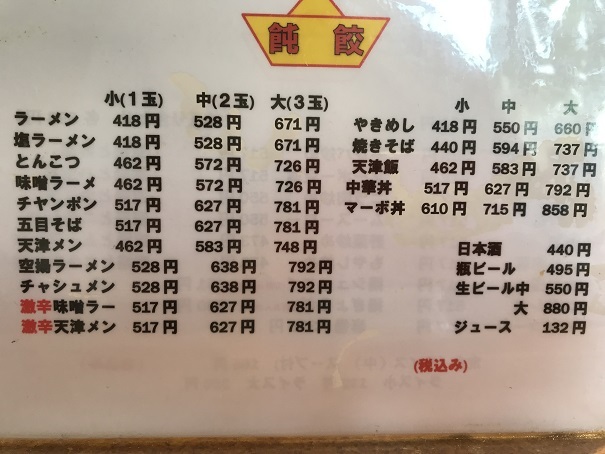 飩 餃
小(1玉) 中(2玉) 大(3玉)
ラーメン 418円 528円 671円
塩ラーメン 418円 528円 671円
とんこつ 462円 572円 726円
味噌ラーメ 462円 572円 726円
チャンポン 517円 627円 781円
五目そば 517円 627円 781円
天津メン 462円 583円 748円
空揚ラーメン 528円 638円 792円
チャシュメン 528円 638円 792円
激辛味噌ラー 517円 627円 781円
激辛天津メン 517円 627円 781円
小 中 大
やきめし 418円 550円 660円
焼きそば 440円 594円 737円
天津飯 462円 583円 737円
中華丼 517円 627円 792円
マーボ丼 610円 715円 858円
日本酒 440円
瓶ビール 495円
生ビール中 550円
大 880円
ジュース 132円
(税込み)